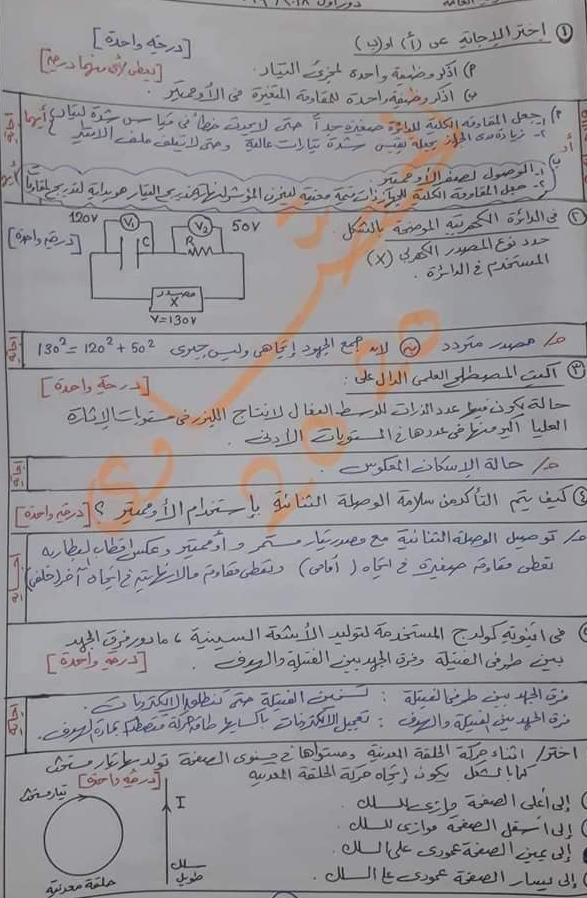 دور أول ٢٠١٨/
① اختر الإجابة عن (أ) أو (ب)
[درجة واحدة]
أ) اذكر وظيفة واحدة لمجزئ التيار.
ب) اذكر وظيفة واحدة للمقاومة المتغيرة فى الأوميتر.
أ) ١- جعل المقاومة الكلية للدائرة صغيرة جداً حتى لا يحدث خطأ فى قياس شدة التيار
٢- زيادة مدى الجهاز بجعله يقيس شدة تيارات عالية وحتى لا يتلف ملف الأميتر
أيهما
إجابة
٢- جعل المقاومة الكلية للجهاز ذات قيمة
② فى الدائرة الكهربية الموضحة بالشكل
حدد نوع المصدر الكهربى (X)
المستخدم فى الدائرة.
[درجة واحدة]
120V V₁ V₂ 50V
C R
مصدر
X
V=130V
حـ/ مصدر متردد لأنه جمع الجهود إتجاهى وليس جبرى 130² = 120² + 50²
إجابة
③ اكتب المصطلح العلمى الدال على:
[درجة واحدة]
حالة يكون فيها عدد الذرات للوسط الفعال لإنتاج الليزر فى مستويات الإثارة
العليا أكبر منها فى عددها فى المستويات الأدنى.
حـ/ حالة الإسكان المعكوس
إجابة
④ كيف يتم التأكد من سلامة الوصلة الثنائية بإستخدام الأوميتر؟ [درجة واحدة]
حـ/ توصيل الوصلة الثنائية مع مصدر تيار مستمر وأوميتر وعكس أقطاب البطارية
تعطى مقاومة صغيرة فى اتجاه (أمامى) وتعطى مقاومة مالانهاية فى إتجاه آخر (خلفى)
إجابة
فى أنبوبة كولدج المستخدمة لتوليد الأشعة السينية، ما دور فرق الجهد
بين طرفى الفتيلة وفرق الجهد بين الفتيلة والهدف. [درجة واحدة]
فرق الجهد بين طرفى الفتيلة : تسخين الفتيلة حتى تنطلق الإلكترونات.
فرق الجهد بين الفتيلة والهدف : تعجيل الإلكترونات بإكسابها طاقة حركة فتصطدم بمادة الهدف.
إجابة
اختر/ اثناء حركة الحلقة المعدنية ومستواها فى مستوى الصفحة تولد بها تيار مستحث
كما بالشكل يكون إتجاه حركة الحلقة المعدنية
[درجة واحدة]
إلى أعلى الصفحة موازى للسلك.
إلى أسفل الصفحة موازى للسلك.
إلى يمين الصفحة عمودى على السلك.
إلى يسار الصفحة عمودى على السلك.
تيار مستحث
I
سلك
طويل
حلقة معدنية